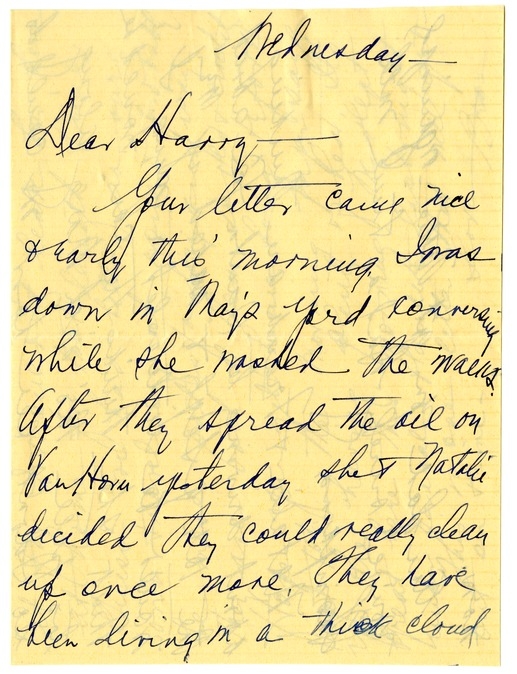 Wednesday —
Dear Harry —
Your letter came nice
& early this morning. I was
down in May's yard conversing
while she washed the walks.
After they spread the oil on
Van Horn yesterday she & Natalie
decided they could really clean
up once more. They have
been living in a thick cloud